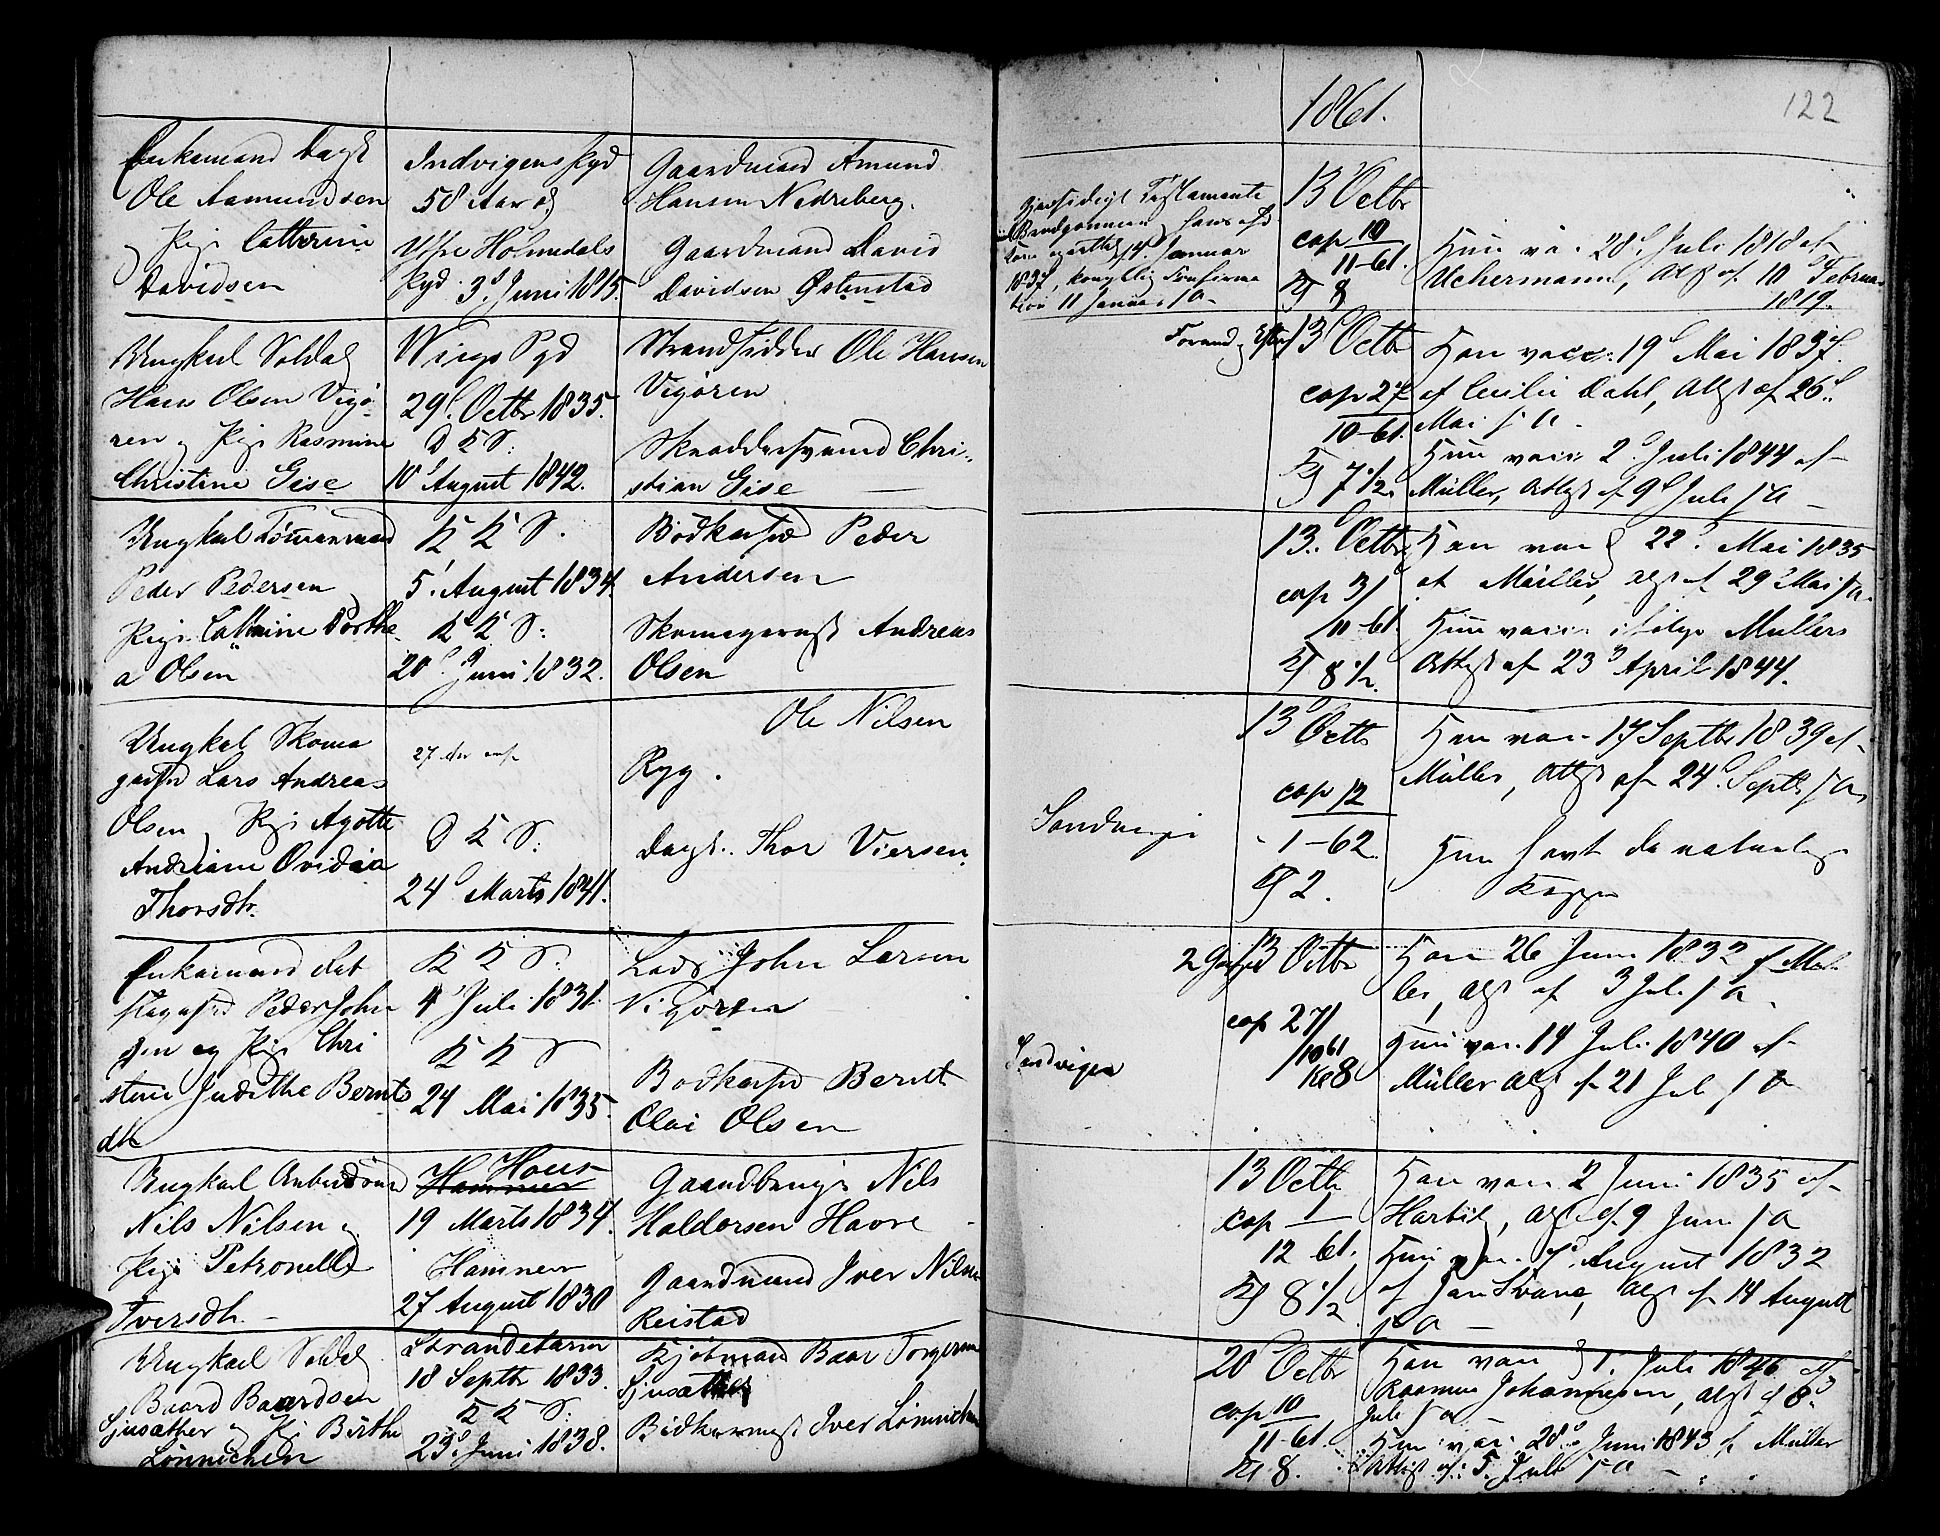 1861.
122
Enkemand Dagk
Ole Aamundsen
og Pige Catherine
Davidsen
Indvigens Pgd
58 Aar og
Ytre Holmedals
Pgd. 3d Juni 1815.
Gaardmand Amund
Hansen Nedreberg.
Gaardmand David
Davidsen Østenstad
Gjensidigt Testamente
1837, kongelig Confirma
tion 11 Januar s A
13 Octbr
cop 10
11-61.
8
Hun vac. 28d Juli 1818 af
Uchermann, Attest af 10 Februar
1819.
Ungkarl Soldat
Hans Olsen Vigø
ren og Pige Rasmine
Christine Gise
Wiigs Pgd
29d Octbr 1835.
D K S:
10d August 1842.
Strandsidder Ole Hansen
Vigøren
Skræddersvend Chri-
stian Gise
13d Octb
cop 27
10-61.
7 1/2.
Han vacc. 19d Mai 1837.
af Cecilie Dahl, Attest af 26d
Mai s A.
Hun vacc. 2d Juli 1844 af
Müller, Attest af 9d Juli s A
Ungkarl Tømmermand
Peder Pedersen
Pige Cathrine Dorthe
a Olsen
K K S.
5' August 1834.
K K S:
20d Juni 1832.
Bødkersvd Peder
Andersen
Skomagermst Andreas
Olsen
13. Octbr
cop 3/
11-61.
8 1/2.
Han vac 22d Mai 1835
af Müller, Attst af 29 Mai s A.
Hun vacc. ifølge Mullers
Attest af 23d April 1844.
Ungkal Skoma
gersvd Lars Andreas
Olsen, Pige Agotte
Andriane Ovidia
Thorsdtr.
D K S:
24d Marts 1841.
Ole Nilsen
Ryg.
Dagk. Thor Viersen.
Sandvigen
13d Octb
cop 12
1-62.
2.
Han vac. 17 Septbr 1839 af
Müller, Attst af 24d Septb s A,
Hun havt de naturlige
Kopper
Enkemand Sla
gtersvd Peder John
sen og Pige Chri
stine Judithe Bernts
dtr
K K S:
4d Juli 1831.
K K S
24 Mai 1835.
Lods John Larsen
Vigøren
Bødkersvd Berndt
Clai Olsen
Sandvigen
13 Octbr
cop 27/
10 61
8
Han 26 Juni 1832 af Mül
ler, Atst af 3 Juli s A.
Hun vac. 14 Juli 1840 af
Müller Atst af 21 Juli s A
Ungkarl Arbeidsmd
Nils Nilsen og
Pige Petronelle
Iversdtr.
Haus
Hammer
19 Marts 1834.
Hammer
27 August 1830
Gaardbruger Nils
Haldorsen Havre
Gaardmand Iver Nilsen
Reistad
13 Octbr
cop 1
12 61.
8 1/2
Han vac. 2 Juni 1835 af
Harbitz, Atst af 9 Juni s A
Hun vac. 7d August 1832
af Jan Svane, Atst af 14 August
s A
Ungkarl Soldat
Baard Baardsen
Sjusæther og Pige Birthe
Lønnichen
Strandebarm
18 Septbr 1833.
K K S:
23d Juni 1838.
Kjøbmand Baar Torgersen
Sjusæther
Bødkermest Iver Lønnichen
20d Octbr
cop 10
11-61.
8.
Han vac 1. Juli 1846 af
Rasmus Johannesen, Atst af 8d
Juli s A
Hun vac. 28d Juni 1843 af Müller
Attest af 5. Juli s A